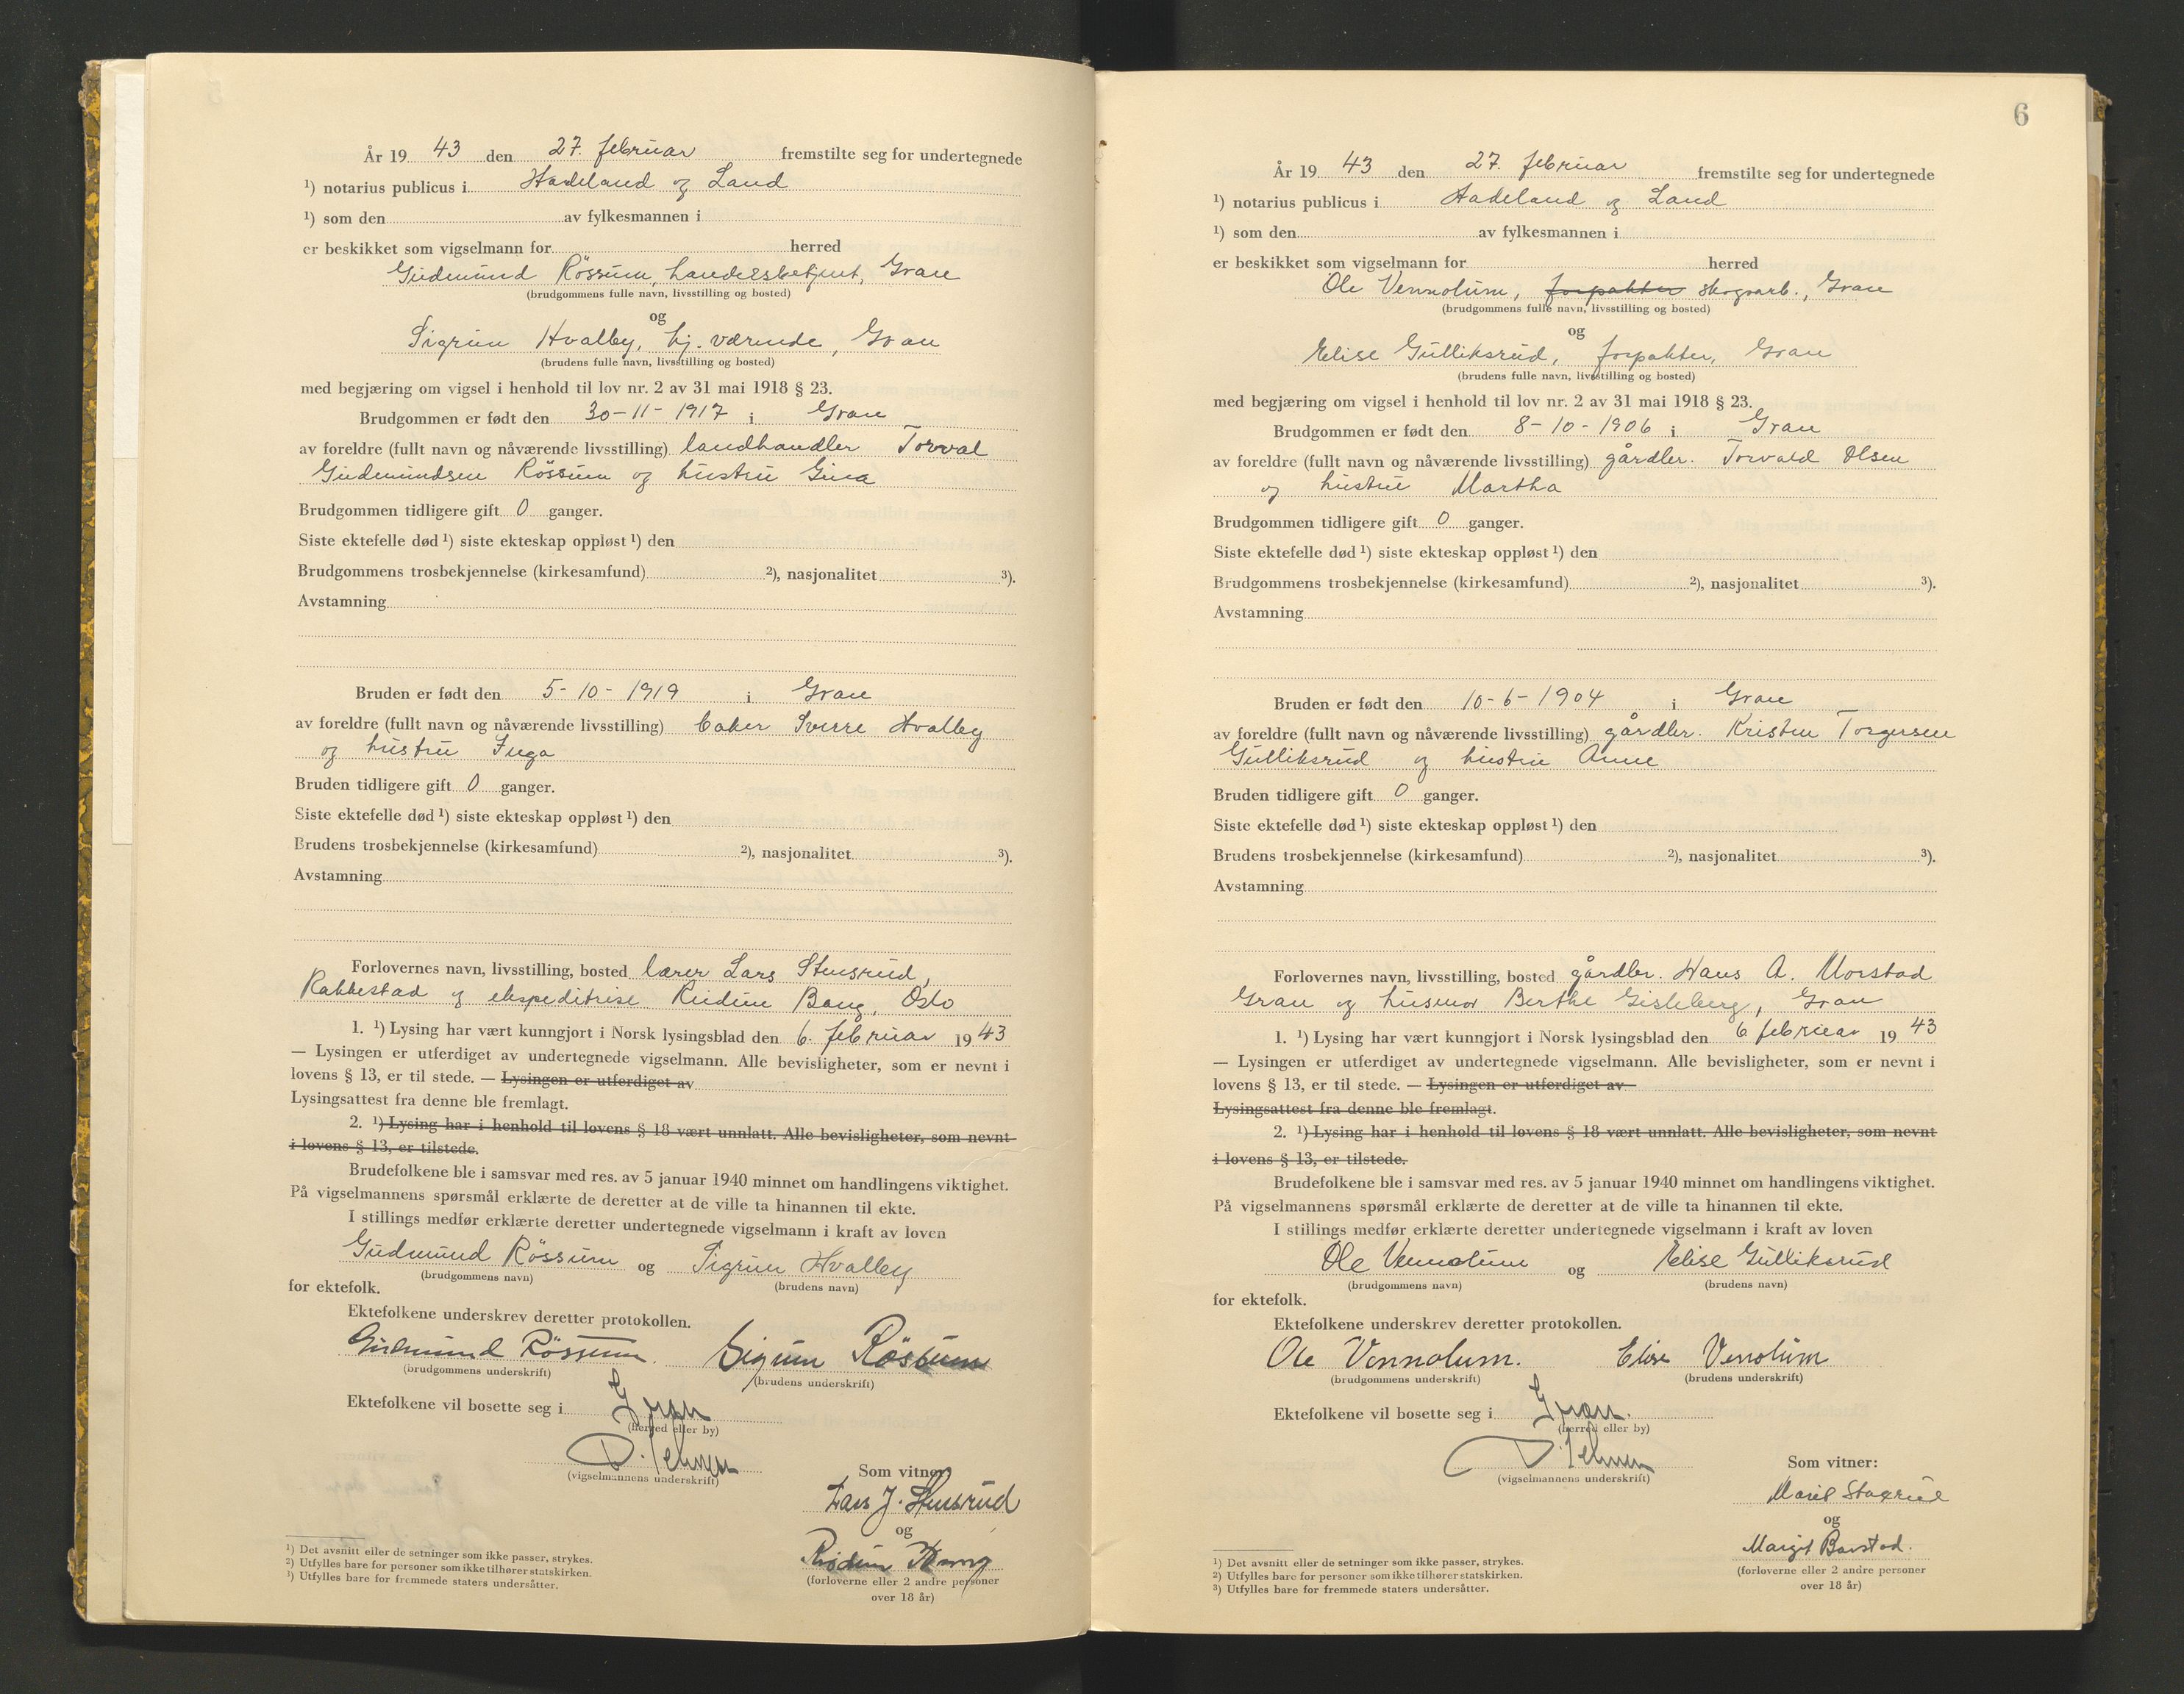 År 19 43 den 27. februar fremstilte seg for undertegnede
¹) notarius publicus i Hadeland og Land
¹) som den av fylkesmannen i
er beskikket som vigselmann for herred
Gudmund Rössum, handelsbetjent, Gran
(brudgommens fulle navn, livsstilling og bosted)
og
Sigrun Hvalby, hj. værende, Gran
(brudens fulle navn, livsstilling og bosted)
med begjæring om vigsel i henhold til lov nr. 2 av 31 mai 1918 § 23.
Brudgommen er født den 30-11-1917 i Gran
av foreldre (fullt navn og nåværende livsstilling) landhandler Torval
Gudmundsen Rössum og hustru Gina
Brudgommen tidligere gift 0 ganger.
Siste ektefelle død ¹) siste ekteskap oppløst ¹) den
Brudgommens trosbekjennelse (kirkesamfund) ²), nasjonalitet ³).
Avstamning
Bruden er født den 5-10-1919 i Gran
av foreldre (fullt navn og nåværende livsstilling) baker Sverre Hvalby
og hustru Inga
Bruden tidligere gift 0 ganger.
Siste ektefelle død ¹) siste ekteskap oppløst ¹) den
Brudens trosbekjennelse (kirkesamfund) ²), nasjonalitet ³).
Avstamning
Forlovernes navn, livsstilling, bosted lærer Lars Stensrud,
Rakkestad og ekspeditrise Bang, Oslo
1. ¹) Lysing har vært kunngjort i Norsk lysingsblad den 6. februar 19 43
— Lysingen er utferdiget av undertegnede vigselmann. Alle bevisligheter, som er nevnt i
lovens § 13, er til stede. — Lysingen er utferdiget av
Lysingsattest fra denne ble fremlagt.
2. ¹) Lysing har i henhold til lovens § 18 vært unnlatt. Alle bevisligheter, som nevnt
i lovens § 13, er tilstede.
Brudefolkene ble i samsvar med res. av 5 januar 1940 minnet om handlingens viktighet.
På vigselmannens spørsmål erklærte de deretter at de ville ta hinannen til ekte.
I stillings medfør erklærte deretter undertegnede vigselmann i kraft av loven
Gudmund Rössum og Sigrun Hvalby
(brudgommens navn) (brudens navn)
for ektefolk.
Ektefolkene underskrev deretter protokollen.
Gudmund Rössum. Sigrun Rössum
(brudgommens underskrift) (brudens underskrift)
Ektefolkene vil bosette seg i Gran
(herred eller by)
(vigselmannens underskrift)
Som vitner:
Lars J. Stensrud
og
(forloverne eller 2 andre personer
over 18 år)
¹) Det avsnitt eller de setninger som ikke passer, strykes.
²) Utfylles bare for personer som ikke tilhører statskirken.
³) Utfylles bare for fremmede staters undersåtter.
6
År 19 43 den 27. februar fremstilte seg for undertegnede
¹) notarius publicus i Hadeland og Land
¹) som den av fylkesmannen i
er beskikket som vigselmann for herred
Ole Vennolum, forpakter skogsarb., Gran
(brudgommens fulle navn, livsstilling og bosted)
og
Elise Gulliksrud, forpakter, Gran
(brudens fulle navn, livsstilling og bosted)
med begjæring om vigsel i henhold til lov nr. 2 av 31 mai 1918 § 23.
Brudgommen er født den 8-10-1906 i Gran
av foreldre (fullt navn og nåværende livsstilling) gårdbr. Torvald Olsen
og hustru Martha
Brudgommen tidligere gift 0 ganger.
Siste ektefelle død ¹) siste ekteskap oppløst ¹) den
Brudgommens trosbekjennelse (kirkesamfund) ²), nasjonalitet ³).
Avstamning
Bruden er født den 10-6-1904 i Gran
av foreldre (fullt navn og nåværende livsstilling) gårdbr. Kristen Torgersen
Gulliksrud og hustru Anne
Bruden tidligere gift 0 ganger.
Siste ektefelle død ¹) siste ekteskap oppløst ¹) den
Brudens trosbekjennelse (kirkesamfund) ²), nasjonalitet ³).
Avstamning
Forlovernes navn, livsstilling, bosted gårdbr. Hans A. Morstad
Gran og husmor Berthe Gisleberg, Gran
1. ¹) Lysing har vært kunngjort i Norsk lysingsblad den 6 februar 19 43
— Lysingen er utferdiget av undertegnede vigselmann. Alle bevisligheter, som er nevnt i
lovens § 13, er til stede. — Lysingen er utferdiget av
Lysingsattest fra denne ble fremlagt.
2. ¹) Lysing har i henhold til lovens § 18 vært unnlatt. Alle bevisligheter, som nevnt
i lovens § 13, er tilstede.
Brudefolkene ble i samsvar med res. av 5 januar 1940 minnet om handlingens viktighet.
På vigselmannens spørsmål erklærte de deretter at de ville ta hinannen til ekte.
I stillings medfør erklærte deretter undertegnede vigselmann i kraft av loven
Ole Vennolum og Elise Gulliksrud
(brudgommens navn) (brudens navn)
for ektefolk.
Ektefolkene underskrev deretter protokollen.
Ole Vennolum. Elise Venolum
(brudgommens underskrift) (brudens underskrift)
Ektefolkene vil bosette seg i Gran.
(herred eller by)
(vigselmannens underskrift)
Som vitner:
Marit Staxrud
og
Margit Barstad.
(forloverne eller 2 andre personer
over 18 år)
¹) Det avsnitt eller de setninger som ikke passer, strykes.
²) Utfylles bare for personer som ikke tilhører statskirken.
³) Utfylles bare for fremmede staters undersåtter.